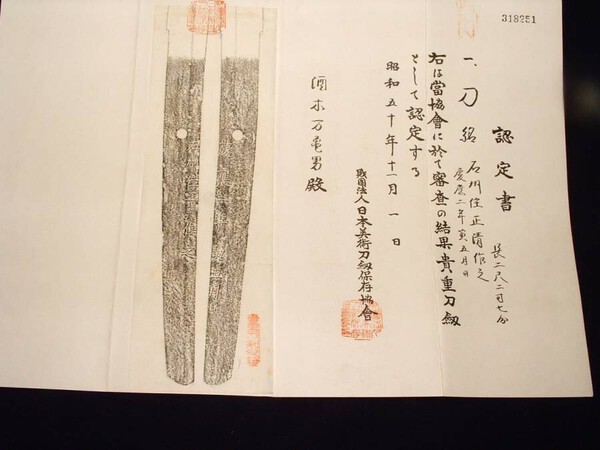 318251
認定書
一、刀 銘 石川住正清作之
慶應二年寅五月日
長二尺二寸七分
右は當協會に於て審査の結果貴重刀劔
として認定する
昭和五十年十一月一日
財團法人日本美術刀劔保存協會
木万亀男殿